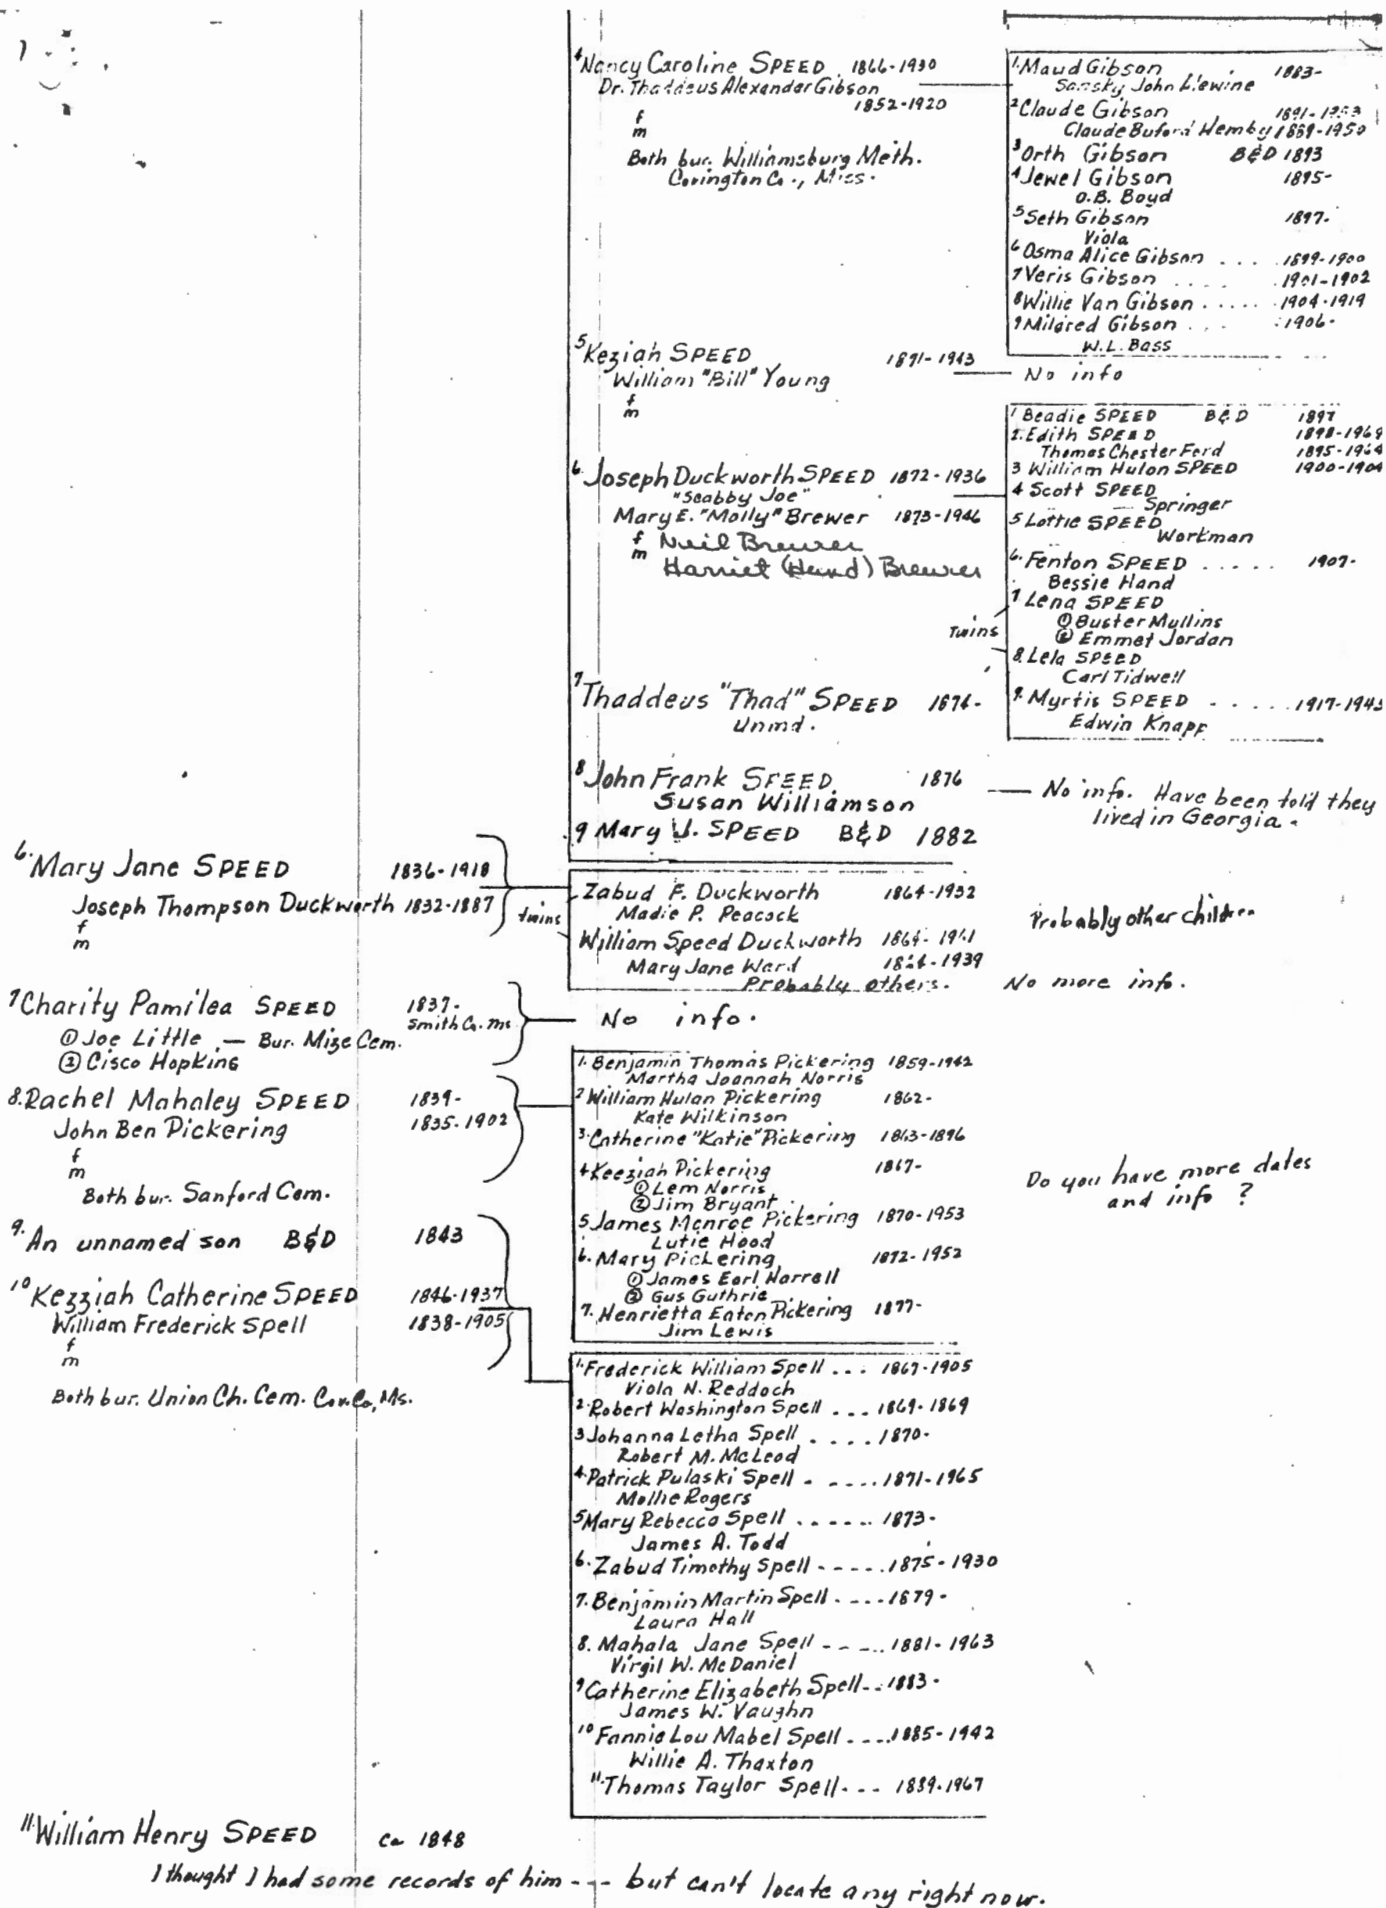 4 Nancy Caroline SPEED 1866-1930
Dr. Thaddeus Alexander Gibson
1852-1920
f
m
Both bur. Williamsburg Meth.
Covington Co., Miss.
1. Maud Gibson 1883-
John Llewine
2 Claude Gibson
Claude Buford Hemby 1889-1950
3 Orth Gibson B&D 1893
4 Jewel Gibson 1895-
O.B. Boyd
5 Seth Gibson 1897-
Viola
6 Osma Alice Gibson . . . 1899-1900
7 Veris Gibson . . . . 1901-1902
8 Willie Van Gibson . . . . . 1904-1919
9 Mildred Gibson . . . 1906-
W.L. Bass
5 Keziah SPEED 1871-1943
William "Bill" Young
f
m
No info
6. Joseph Duckworth SPEED 1872-1936
"Scabby Joe"
Mary E. "Molly" Brewer 1873-1946
f Neil Brewer
m Harriet (Hand) Brewer
1 Beadie SPEED B&D 1897
2. Edith SPEED 1898-1969
Thomas Chester Ford 1895-1964
3 William Hulon SPEED 1900-1904
4 Scott SPEED
— Springer
5 Lottie SPEED
Workman
6. Fenton SPEED . . . . . 1907-
Bessie Hand
Twins
7 Lena SPEED
① Buster Mullins
② Emmet Jordan
8. Lela SPEED
Carl Tidwell
9. Myrtis SPEED - . . . . 1917-1943
Edwin Knapp
7 Thaddeus "Thad" SPEED 1874-
Unmd.
8 John Frank SPEED 1876
Susan Williamson
No info. Have been told they
lived in Georgia.
9 Mary J. SPEED B&D 1882
6. Mary Jane SPEED 1836-1918
Joseph Thompson Duckworth 1832-1887
f
m
twins
Zabud F. Duckworth 1864-1932
Madie P. Peacock
William Speed Duckworth 1864-
Mary Jane Ward 1939
Probably others.
Probably other children
No more info.
7 Charity Pamilea SPEED 1837-
Smith Co. Ms.
① Joe Little — Bur. Mize Cem.
② Cisco Hopkins
No info.
8. Rachel Mahaley SPEED 1839-
John Ben Pickering 1835-1902
f
m
Both bur. Sanford Cem.
1. Benjamin Thomas Pickering 1859-1942
Martha Joannah Norris
2 William Hulan Pickering 1862-
Kate Wilkinson
3. Catherine "Katie" Pickering 1863-1896
4 Keeziah Pickering 1867-
① Lem Norris
② Jim Bryant
5. James Monroe Pickering 1870-1953
Lutie Hood
6. Mary Pickering 1872-1952
① James Earl Harrell
② Gus Guthrie
7. Henrietta Eaton Pickering 1877-
Jim Lewis
Do you have more dates
and info ?
9. An unnamed son B&D 1843
10 Kezziah Catherine SPEED 1846-1937
William Frederick Spell 1838-1905
f
m
Both bur. Union Ch. Cem. Cov. Co, Ms.
1. Frederick William Spell . . . 1867-1905
Viola N. Reddoch
2. Robert Washington Spell . . . 1869-1869
3 Johanna Letha Spell . . . . 1870-
Robert M. McLeod
4. Patrick Pulaski Spell - . . . . 1871-1965
Mollie Rogers
5 Mary Rebecca Spell . . . . . . 1873-
James A. Todd
6. Zabud Timothy Spell - - - . . 1875-1930
7. Benjamin Martin Spell . - - . 1879-
Laura Hall
8. Mahala Jane Spell - - - . . 1881-1963
Virgil W. McDaniel
9 Catherine Elizabeth Spell - . . 1883-
James W. Vaughn
10 Fannie Lou Mabel Spell . - - . . 1885-1942
Willie A. Thaxton
11. Thomas Taylor Spell - - - 1889-1967
11. William Henry SPEED Ca 1848
I thought I had some records of him - - - but can't locate any right now.